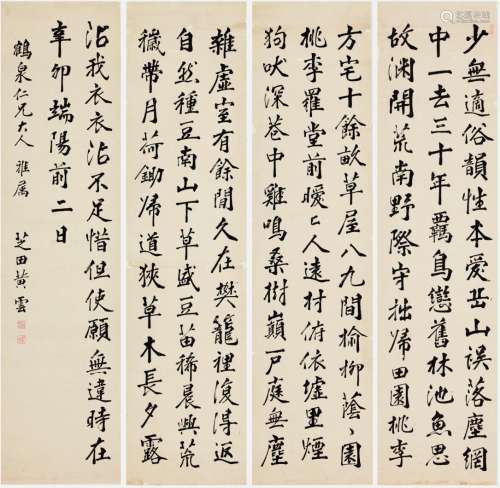 少無適俗韻性本愛丘山誤落塵網
中一去三十年羈鳥戀舊林池魚思
故淵開荒南野際守拙歸田園桃李
方宅十餘畝草屋八九間榆柳蔭〻園
桃李羅堂前曖〻人遠村俯依墟里煙
狗吠深巷中雞鳴桑樹巔戶庭無塵
雜虛室有餘閒久在樊籠裡復得返
自然種豆南山下草盛豆苗稀晨興荒
穢帶月荷鋤歸道狹草木長夕露
沾我衣衣沾不足惜但使願無違時在
辛卯端陽前二日
鶴泉仁兄大人 雅屬 芝田黃雲